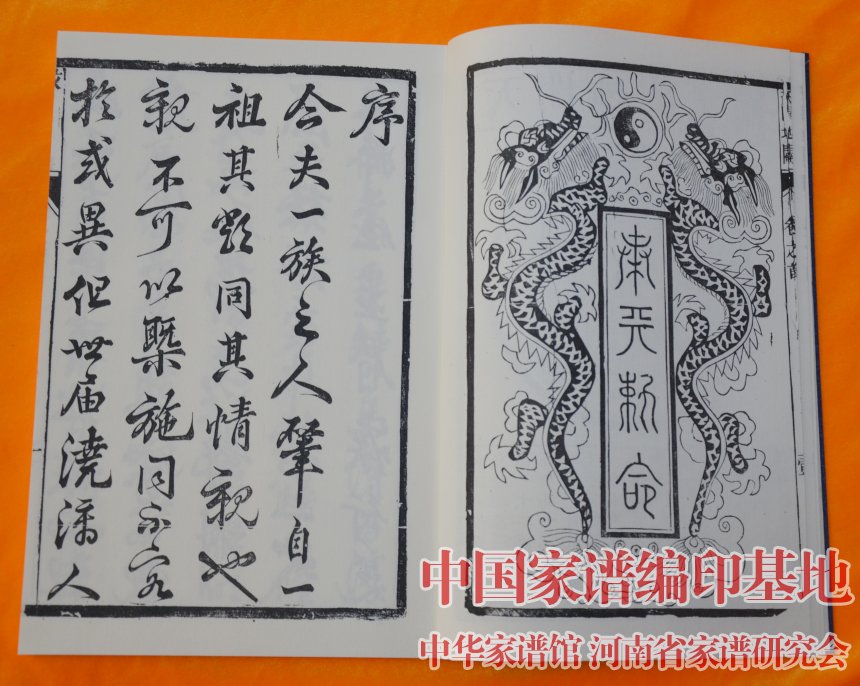 奉天勅命
卷之首
序
今夫一族之人肇自一
祖其類同其情親也
親不可以槩施同不容
於或異但世届澆漓人
中国家谱编印基地
中华家谱馆 河南省家谱研究会